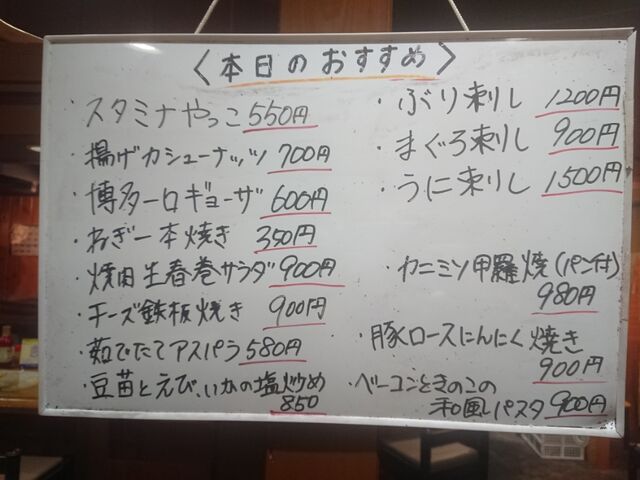 〈本日のおすすめ〉
・スタミナやっこ 550円
・揚げカシューナッツ 700円
・博多一口ギョーザ 600円
・ねぎ一本焼き 350円
・焼肉生春巻サラダ 900円
・チーズ鉄板焼き 900円
・茹でたてアスパラ 580円
・豆苗とえび、いかの塩炒め
850
・ぶり刺し 1200円
・まぐろ刺し 900円
・うに刺し 1500円
・カニミソ甲羅焼(パン付)
980円
・豚ロースにんにく焼き
900円
・ベーコンときのこの
和風パスタ 900円